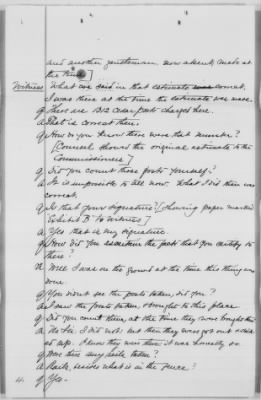 and another gentleman now absent, made at
the time]
Witness What was said in that estimate was correct.
I was there at the time the estimate was made.
Q There are 1312 cedar posts charged here.
A That is correct then.
Q How do you know there were that number?
[Counsel shows the original estimate to the
Commissioners]
Q Did you count those posts yourself?
A It is impossible to tell now. What I did then was
correct.
Q Is that your signature? (showing paper marked
Exhibit B to witness]
A Yes that is my signature.
Q How did you ascertain the posts that you certify to
there?
A Well I was on the ground at the time this thing was
done.
Q You didn't see the posts taken, did you?
A I saw the posts taken, brought to this place.
Q Did you count them at the time they were brought there
A No Sir, I did not: but then they was got out
I know they were then it was honestly so.
Q Were there any rails taken?
A Rails, besides what is in the fence?
Q Yes.